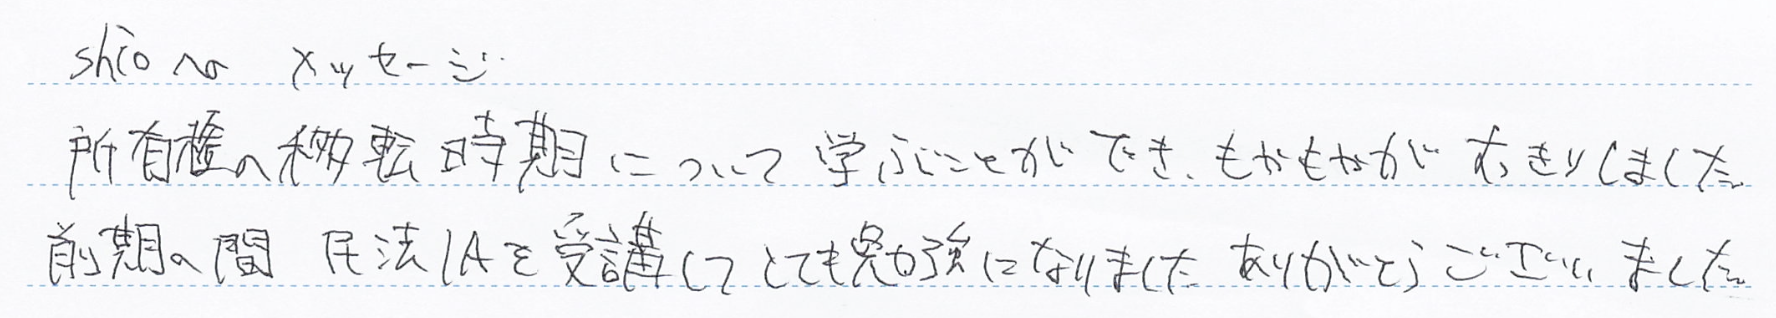 shioへの メッセージ
所有権の移転時期について 学ぶことができ、もやもやが すっきりしました。
前期の間 民法1Aを受講して とても勉強になりました ありがとうございました。